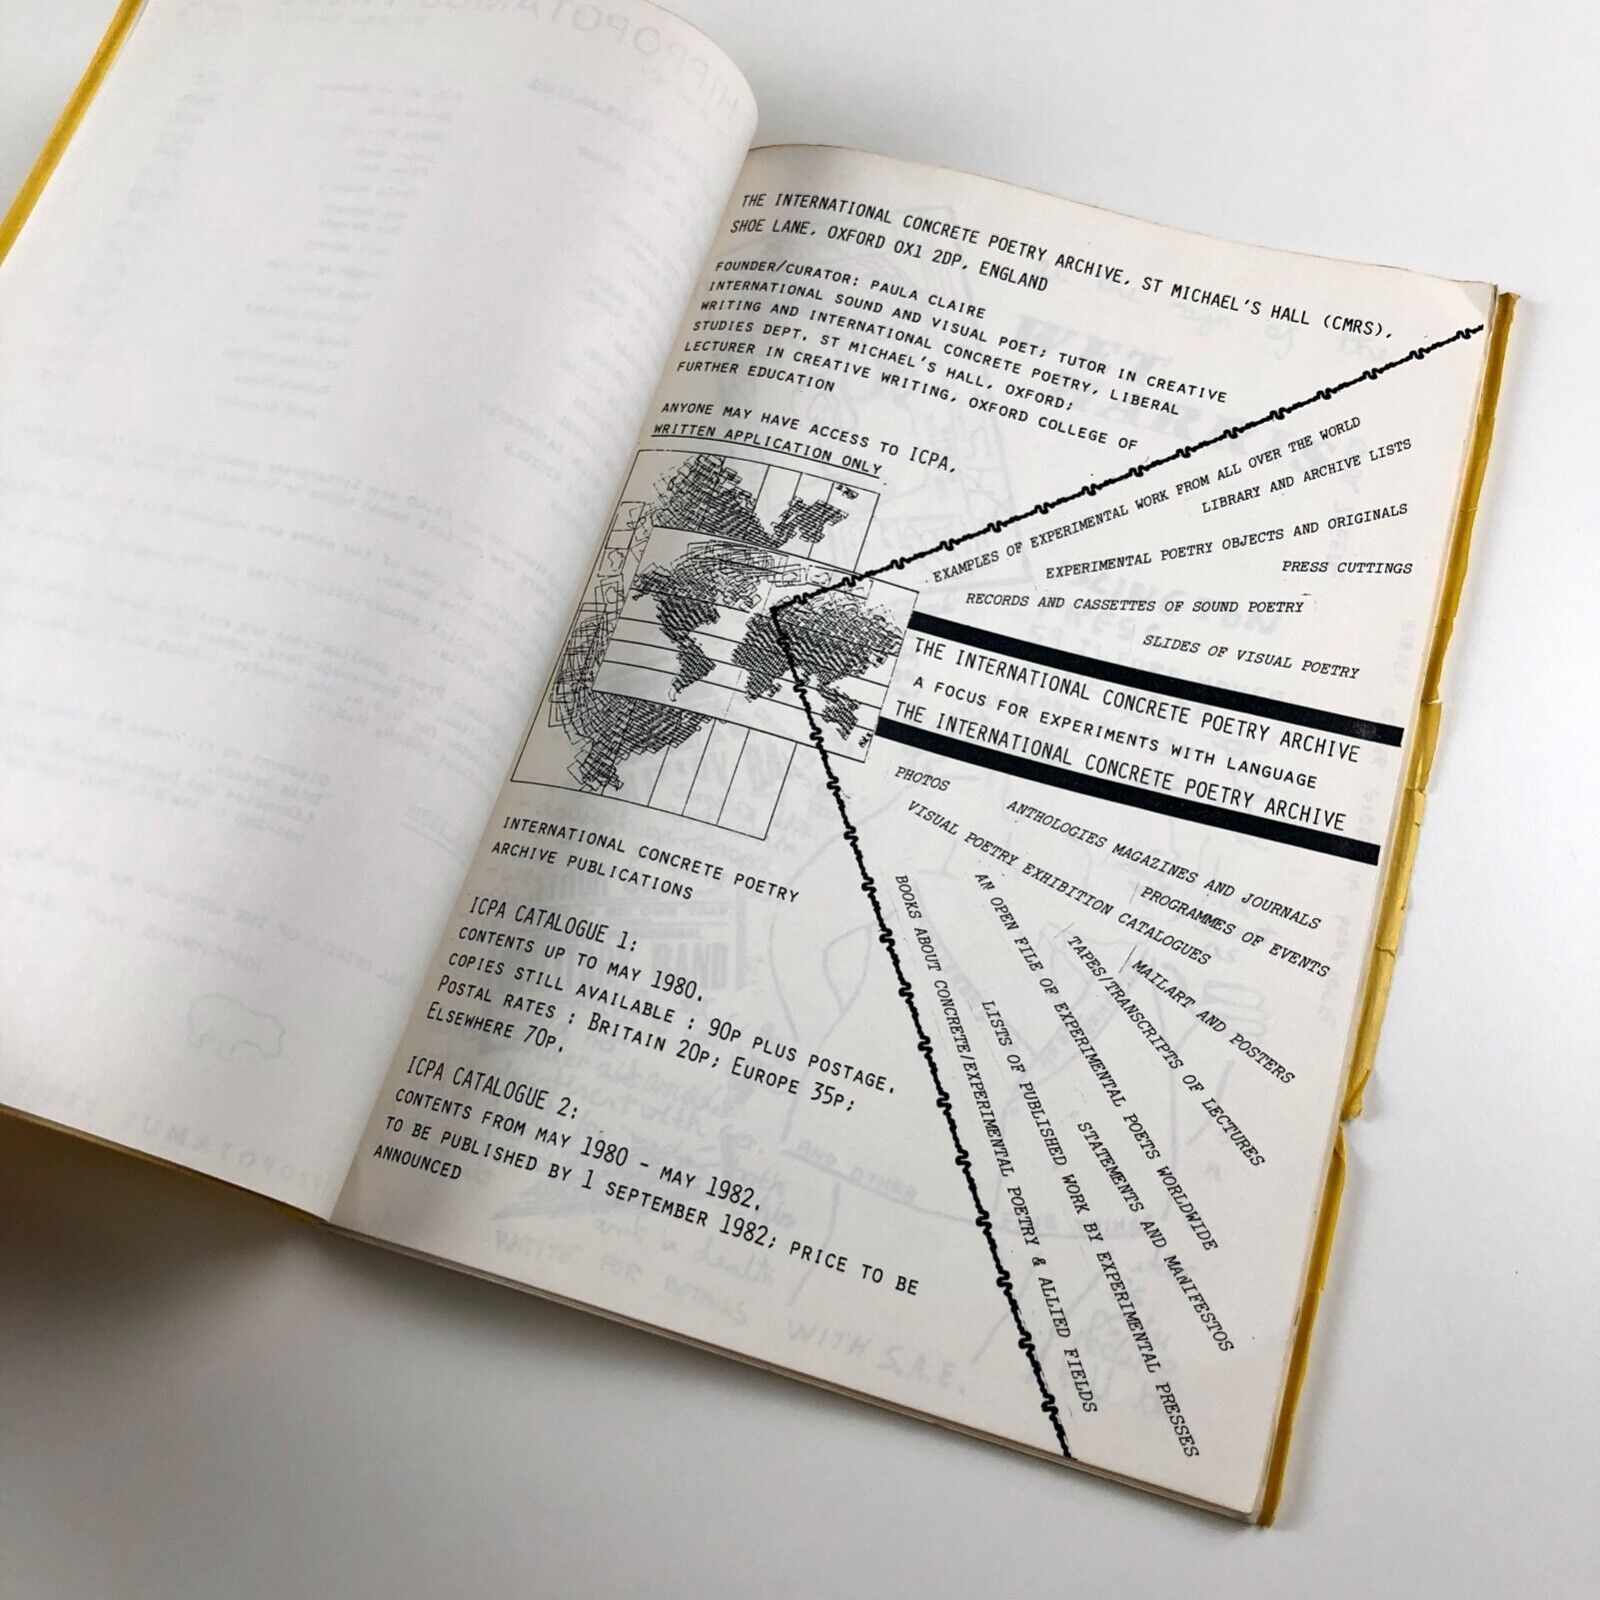 THE INTERNATIONAL CONCRETE POETRY ARCHIVE, ST MICHAEL'S HALL (CMRS),
SHOE LANE, OXFORD OX1 2DP, ENGLAND
FOUNDER/CURATOR: PAULA CLAIRE
INTERNATIONAL SOUND AND VISUAL POET; TUTOR IN CREATIVE
WRITING AND INTERNATIONAL CONCRETE POETRY, LIBERAL
STUDIES DEPT, ST MICHAEL'S HALL, OXFORD;
LECTURER IN CREATIVE WRITING, OXFORD COLLEGE OF
FURTHER EDUCATION
ANYONE MAY HAVE ACCESS TO ICPA,
WRITTEN APPLICATION ONLY
EXAMPLES OF EXPERIMENTAL WORK FROM ALL OVER THE WORLD
LIBRARY AND ARCHIVE LISTS
EXPERIMENTAL POETRY OBJECTS AND ORIGINALS
PRESS CUTTINGS
RECORDS AND CASSETTES OF SOUND POETRY
SLIDES OF VISUAL POETRY
THE INTERNATIONAL CONCRETE POETRY ARCHIVE
A FOCUS FOR EXPERIMENTS WITH LANGUAGE
THE INTERNATIONAL CONCRETE POETRY ARCHIVE
PHOTOS
ANTHOLOGIES MAGAZINES AND JOURNALS
VISUAL POETRY EXHIBITION CATALOGUES
PROGRAMMES OF EVENTS
MAILART AND POSTERS
TAPES/TRANSCRIPTS OF LECTURES
AN OPEN FILE OF EXPERIMENTAL POETS WORLDWIDE
STATEMENTS AND MANIFESTOS
LISTS OF PUBLISHED WORK BY EXPERIMENTAL PRESSES
BOOKS ABOUT CONCRETE/EXPERIMENTAL POETRY & ALLIED FIELDS
INTERNATIONAL CONCRETE POETRY
ARCHIVE PUBLICATIONS
ICPA CATALOGUE 1:
CONTENTS UP TO MAY 1980.
COPIES STILL AVAILABLE : 90P PLUS POSTAGE.
POSTAL RATES : BRITAIN 20P; EUROPE 35P;
ELSEWHERE 70P.
ICPA CATALOGUE 2:
CONTENTS FROM MAY 1980 - MAY 1982.
TO BE PUBLISHED BY 1 SEPTEMBER 1982; PRICE TO BE
ANNOUNCED